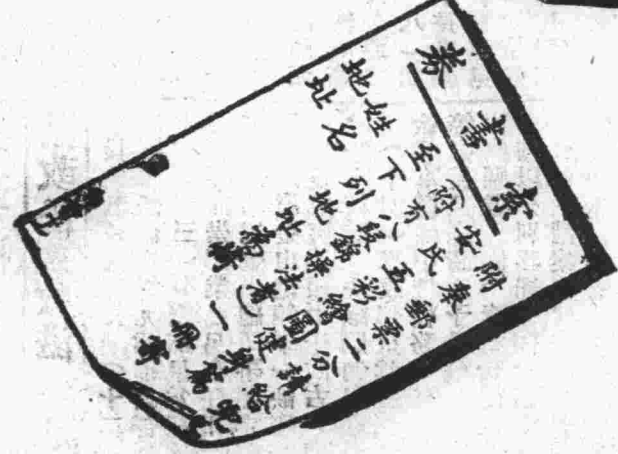 索書券
附奉郵票二分請給兜
安氏五彩繪圖健身
(附有八段錦操法者)一冊寄
至下列地址為荷
姓名
地址